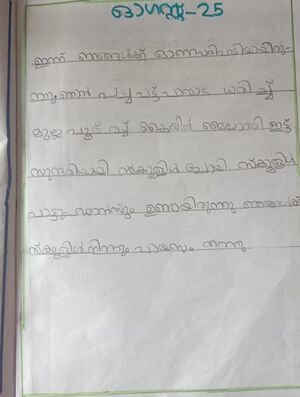 ഓഗസ്റ്റ്-25
ഇന്ന് ഞങ്ങൾക്ക് ഓണപരിപാടിയായിരു-
ന്നു. ഞാൻ പച്ച പട്ട് പാവാട ധരിച്ച്
മുല്ല പൂവ് വച്ച് കൈയിൽ മൈലാഞ്ചി ഇട്ടു
സുന്ദരിയായി സ്കൂളിൽ പോയി സ്കൂളിൽ
പാട്ടും ഡാൻസും ഉണ്ടായിരുന്നു ഞങ്ങൾക്ക്
സ്കൂളിൽ നിന്നും പായസം തന്നു